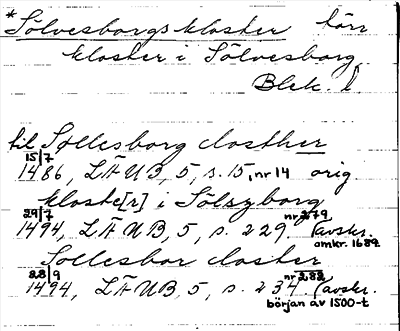 *Sölvesborgs kloster förr
kloster i Sölvesborg,
Blek. l
til Søllesborg closther
15/7
1486, LÄUB, 5, s. 15, nr 14 orig
kloste[r] i Sölszborg
29/7
1494, LÄUB, 5, s. 229 nr 279 (avskr.
omkr. 1689
Sollesbor closter
28/9
1494, LÄUB, 5, s. 234. nr 282 (avskr.
början av 1500-t